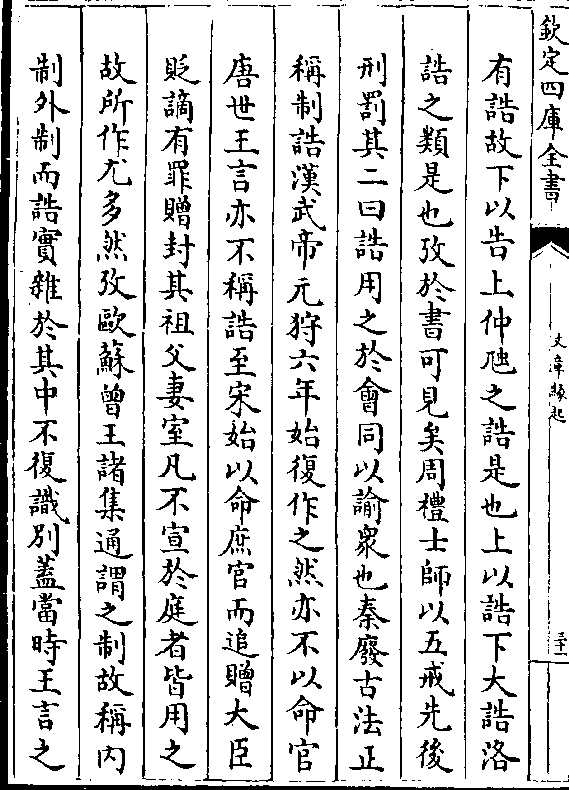 欽定四庫全書
文章緣起
三十一
有誥故下以告上仲虺之誥是也上以誥下大誥洛
誥之類是也攷於書可見矣周禮士師以五戒先後
刑罰其二曰誥用之於會同以諭衆也秦廢古法正
稱制誥漢武帝元狩六年始復作之然亦不以命官
唐世王言亦不稱誥至宋始以命庶官而追贈大臣
貶謫有罪贈封其祖父妻室凡不宣於庭者皆用之
故所作尤多然攷歐蘇曾王諸集通謂之制故稱内
制外制而誥實雜於其中不復識別蓋當時王言之